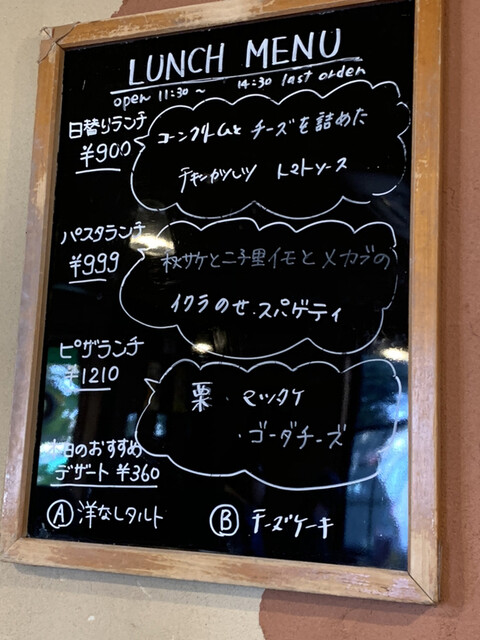 LUNCH MENU
open 11:30 ~ 14:30 last order
日替りランチ
¥900
コーンクリームと チーズを詰めた
チキンカツレツ トマトソース
パスタランチ
¥999
秋サケと二子里イモとメカブの
イクラのせ.スパゲティ
ピザランチ
¥1210
栗.マツタケ
.ゴーダチーズ
本日のおすすめ
デザート ¥360
Ⓐ 洋なしタルト
Ⓑ チーズケーキ